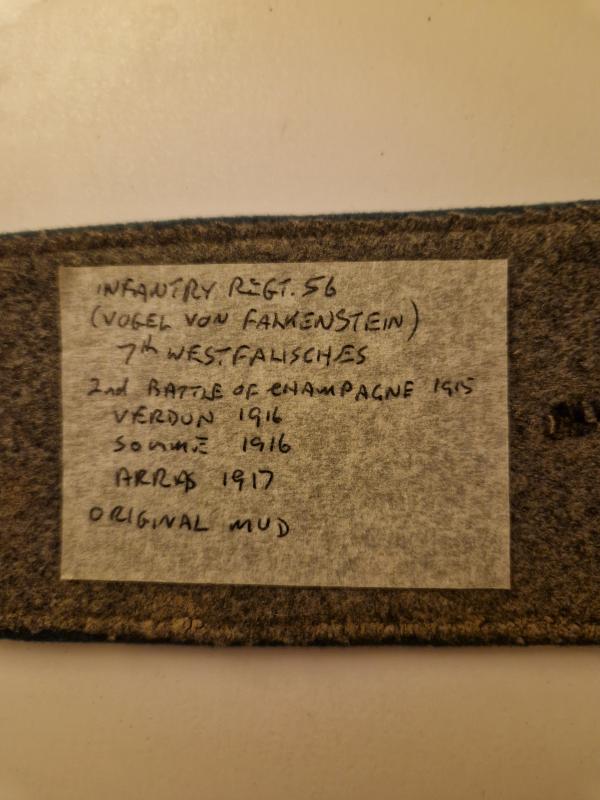 INFANTRY REGT. 56
(VOGEL VON FALKENSTEIN)
7th WESTFALISCHES
2nd BATTLE OF CHAMPAGNE 1915
VERDUN 1916
SOMME 1916
ARRAS 1917
ORIGINAL MUD